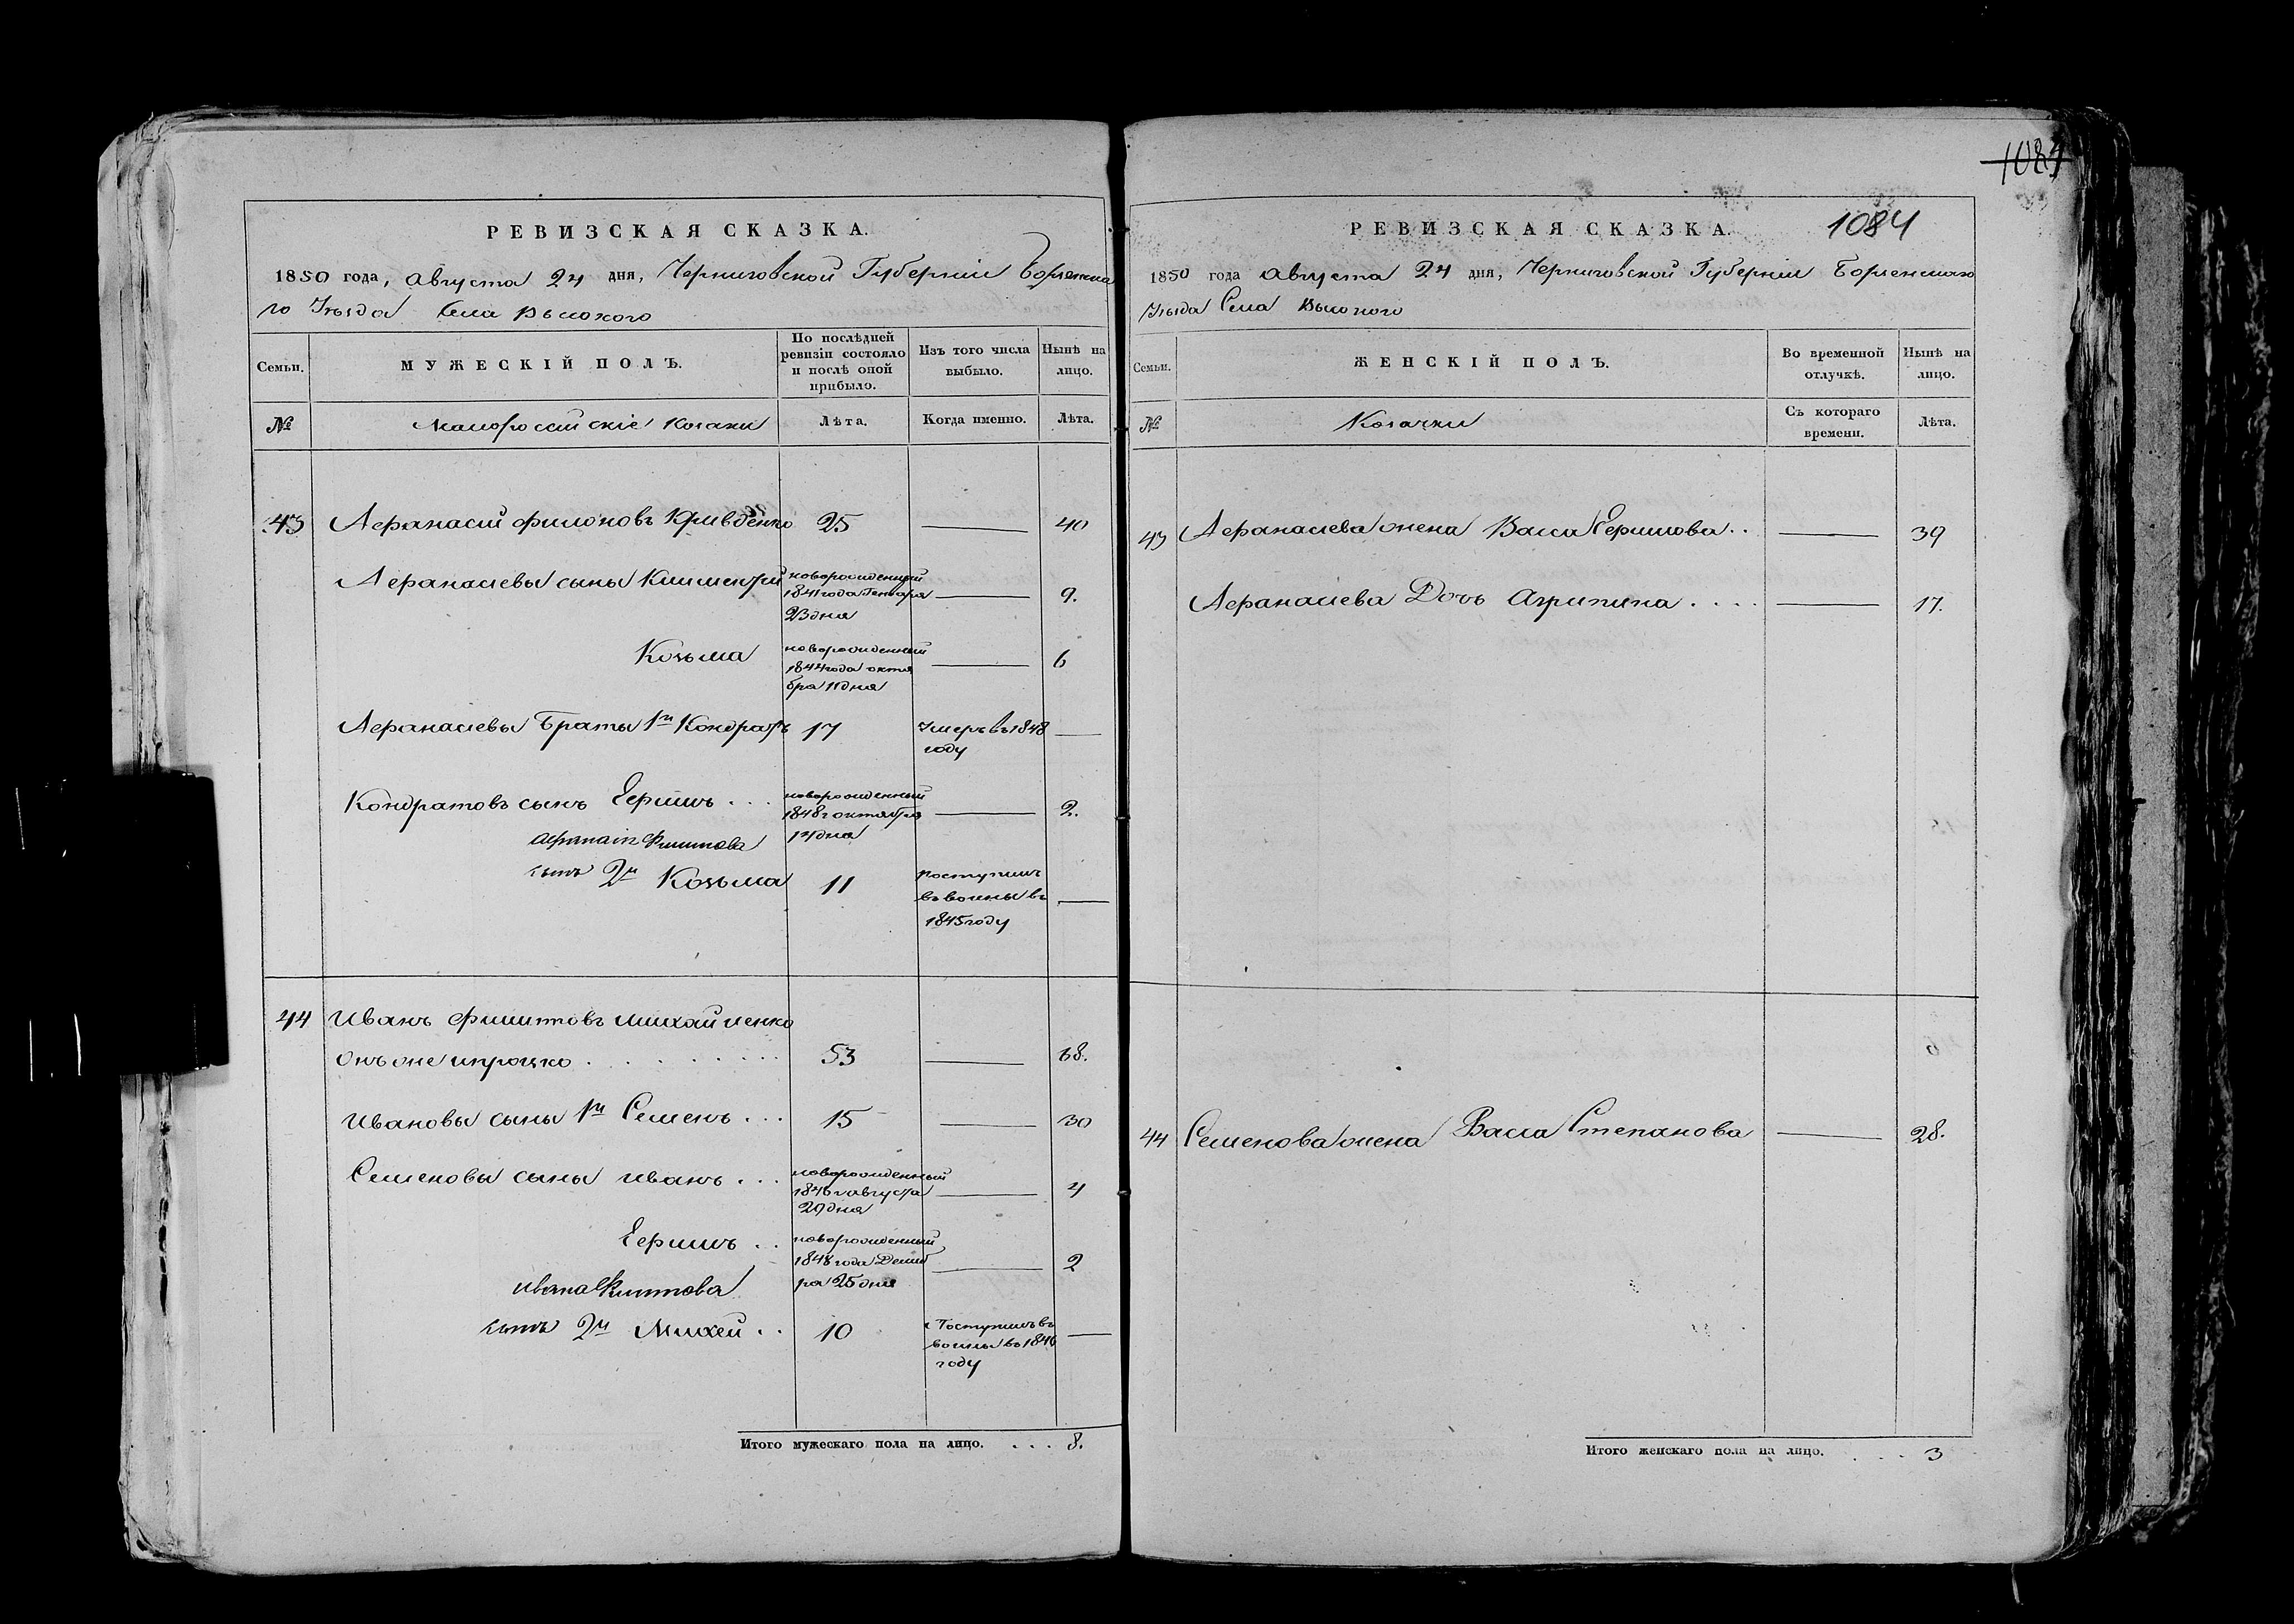 1084
РЕВИЗСКАЯ СКАЗКА.
1850 года, августа 24 дня, Черниговской Губерніи Борзенска
го Уѣзда Села Высокого
Семьи.
МУЖЕСКІЙ ПОЛЪ.
По послѣдней ревизіи состояло и послѣ оной прибыло.
Изъ того числа выбыло.
Нынѣ на лицо.
№
Малоросій скіе Козаки
Лѣта.
Когда именно.
Лѣта.
43 Афанасій Филоновъ Кривденко 25 — 40
Афанасіевы сыны Климентій новорожденный
1841 года Генваря — 9.
23 дня
Козьма новорожденный
1844 года октя — 6
бра 11 дня
Афанасіевы Браты 1й Кондратъ 17 Умеръ въ 1848 —
году
Кондратовъ сынъ Ефимъ ... новорожденный
1848 г октября — 2.
14 дня
сынъ 2й Козьма 11 Поступилъ
въ воины въ —
1845 году
44 Иванъ Филиповъ Михайленко
онъ же Ипрошко . . . . . . 53 — 68.
Ивановы сыны 1й Семенъ ... 15 — 30
Семеновы сыны Иванъ ... новорожденный
1846 г августа — 4
29 дня
Ефимъ .. новорожденный
1848 года Декаб — 2
ра 25 дня
Ивана Филипова
сынъ 2й Михей .. 10 Поступилъ въ
воины въ 1846 —
году
Итого мужескаго пола на лицо. . . . 8.
РЕВИЗСКАЯ СКАЗКА.
1084
1850 года августа 24 дня, Черниговской Губерніи Борзенскаго
Уѣзда Села Высокого
Семьи.
ЖЕНСКІЙ ПОЛЪ.
Во временной отлучкѣ.
Нынѣ на лицо.
№
Козачки
Съ котораго времени.
Лѣта.
43 Афанасіева жена Васса Ефимова .. — 39
Афанасіева Дочь Агрипина . . . . — 17.
44 Семенова жена Васса Степанова — 28.
Итого женскаго пола на лицо. . . . 3